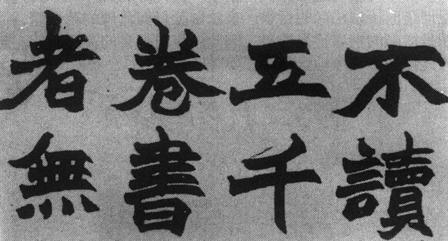 不讀
五千
卷書
者無